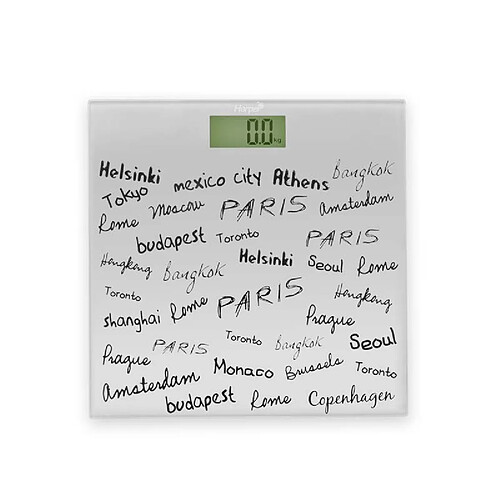 Harper
0.0 kg
Helsinki mexico city Athens Bangkok
Tokyo
Rome Moscow PARIS Amsterdam
budapest Toronto PARIS
Hongkong Bangkok Helsinki Seoul Rome
Toronto Rome PARIS Hongkong
shanghai Prague
Prague PARIS Toronto Bangkok Seoul
Amsterdam Monaco Brussels Toronto
budapest Rome Copenhagen